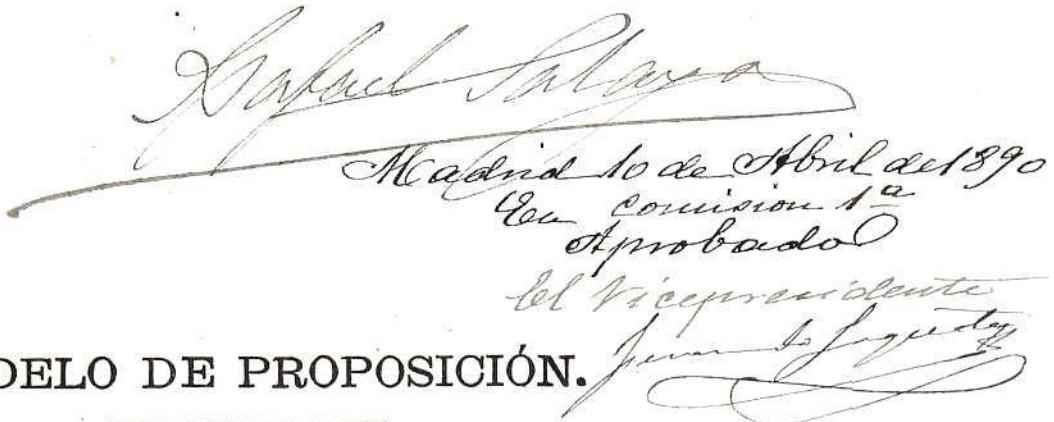 Rafael Salaya
Madrid 10 de Abril de 1890
En comision 1ª
Aprobado
El Vicepresidente
DELO DE PROPOSICIÓN.